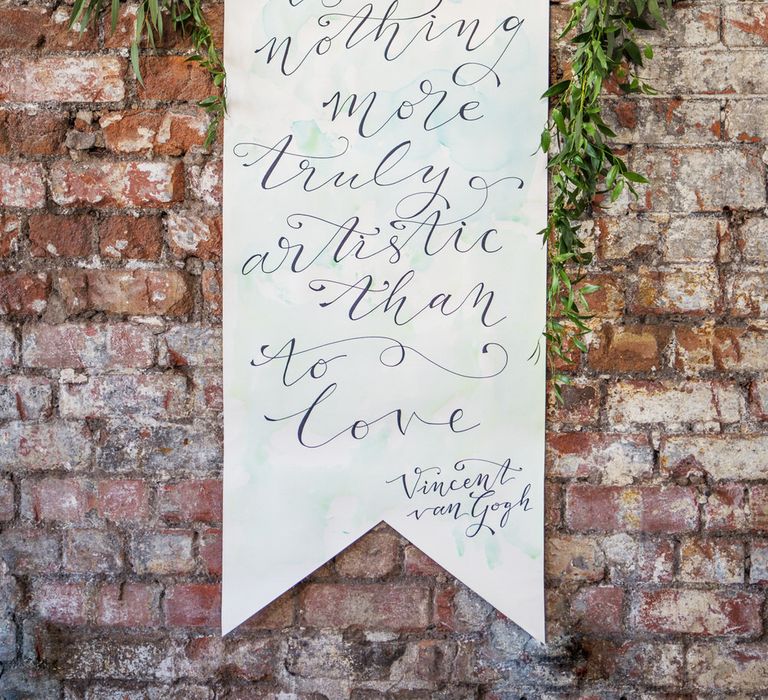 nothing
more
truly
artistic
than
to
love
Vincent
van Gogh